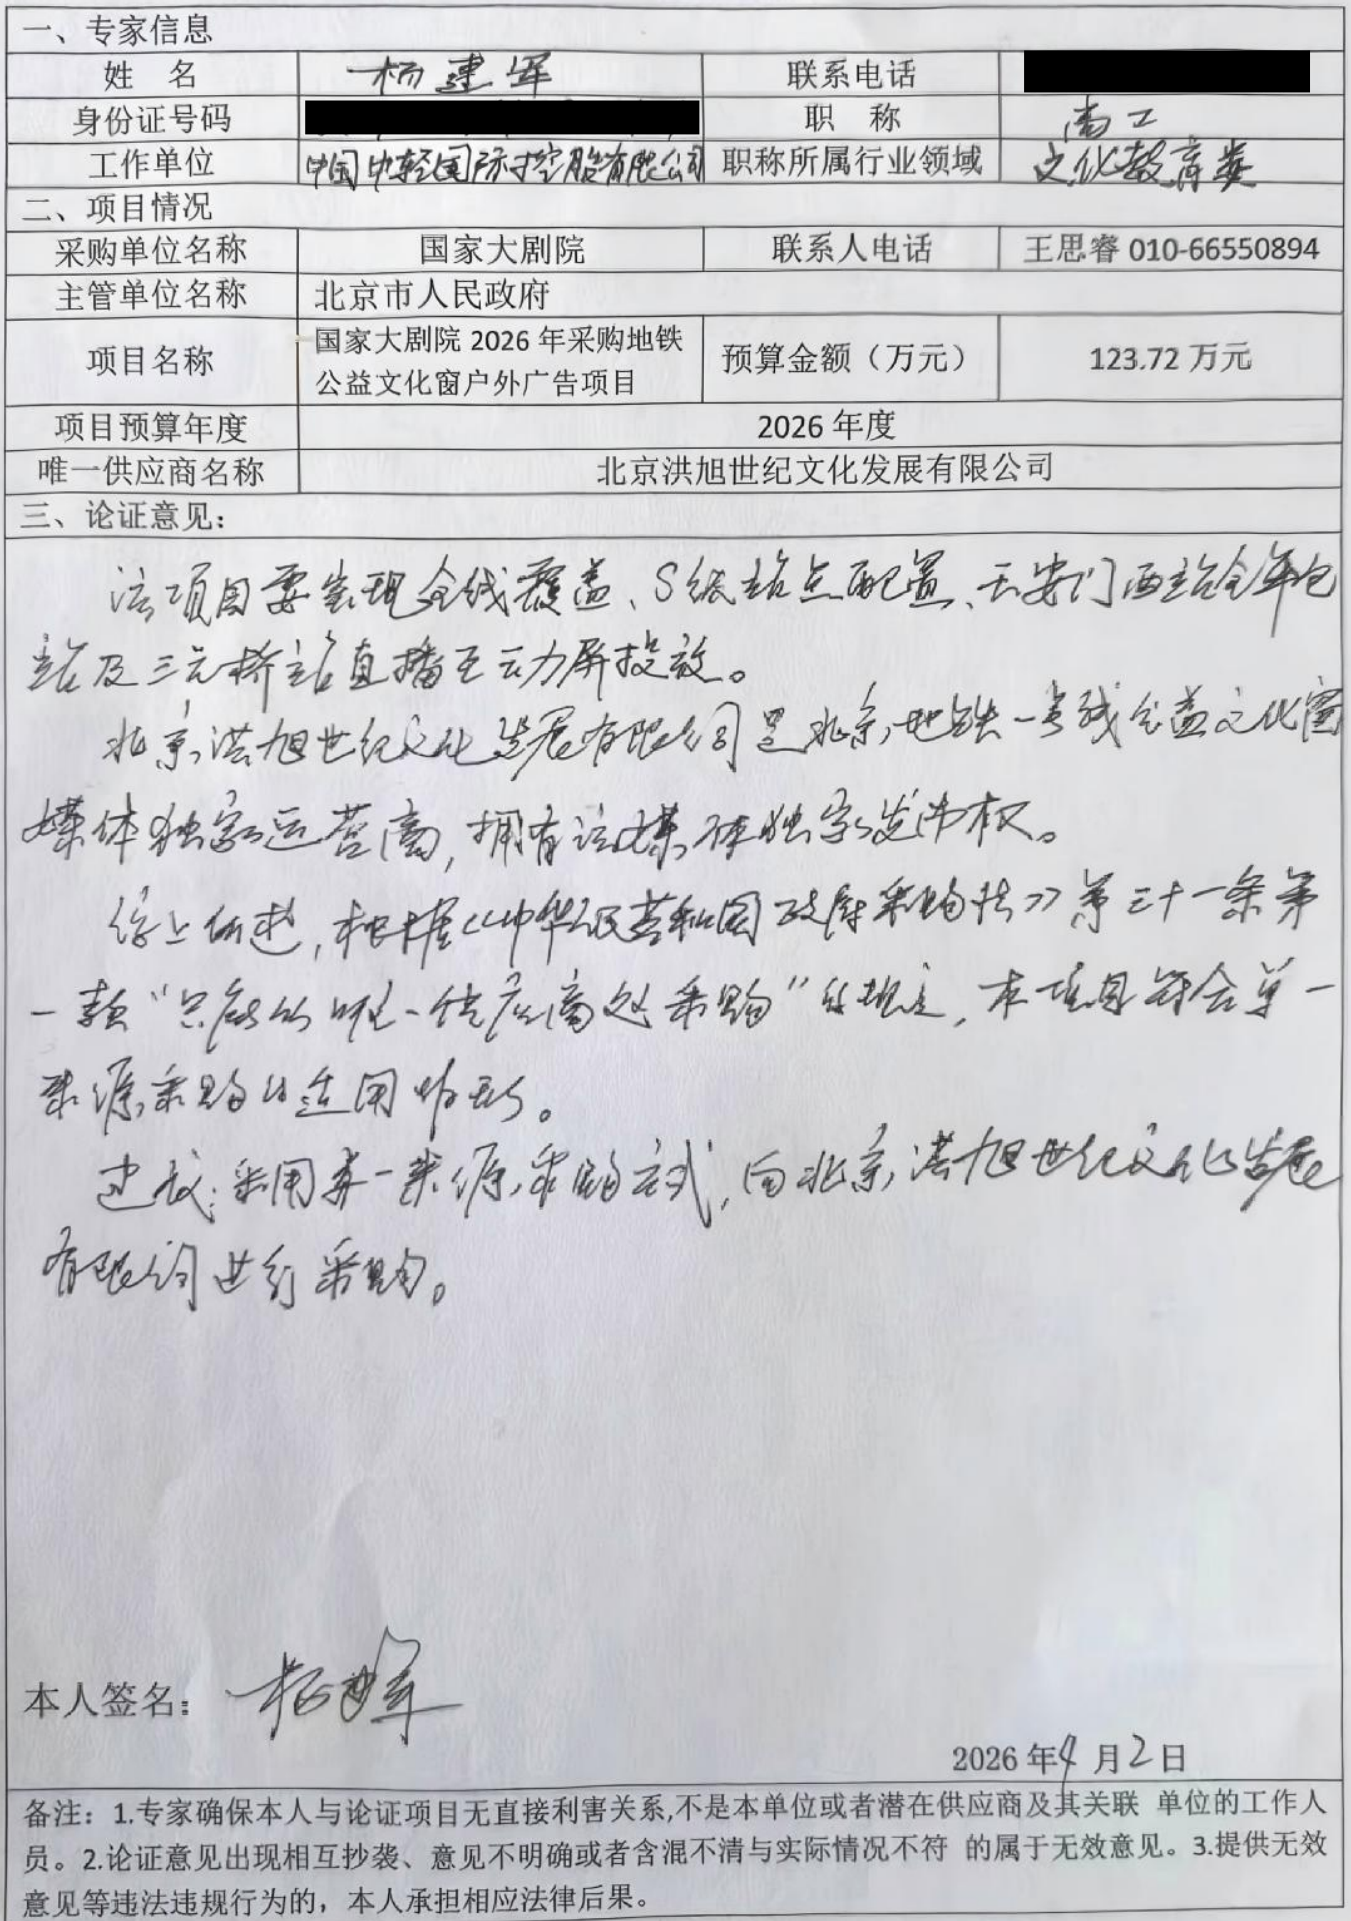 一、专家信息
姓 名 杨建军 联系电话
身份证号码 职 称 高工
工作单位 中国中轻国际控股有限公司 职称所属行业领域 文化教育类
二、项目情况
采购单位名称 国家大剧院 联系人电话 王思睿 010-66550894
主管单位名称 北京市人民政府
项目名称 国家大剧院 2026 年采购地铁公益文化窗户外广告项目 预算金额（万元） 123.72 万元
项目预算年度 2026 年度
唯一供应商名称 北京洪旭世纪文化发展有限公司
三、论证意见：
该项目要实现全线覆盖、S级站点配置、天安门西站全年包
站及三元桥站直播互动屏投放。
北京洪旭世纪文化发展有限公司是北京地铁一号线公益文化窗
媒体独家运营商，拥有该媒体独家发布权。
综上所述，根据《中华人民共和国政府采购法》第三十一条第
一款“只能从唯一供应商处采购”的规定，本项目符合单一
来源采购的适用情形。
建议：采用单一来源采购方式，向北京洪旭世纪文化发展
有限公司进行采购。
本人签名： 杨建军
2026 年4 月2日
备注：1.专家确保本人与论证项目无直接利害关系,不是本单位或者潜在供应商及其关联 单位的工作人
员。2.论证意见出现相互抄袭、意见不明确或者含混不清与实际情况不符 的属于无效意见。3.提供无效
意见等违法违规行为的，本人承担相应法律后果。